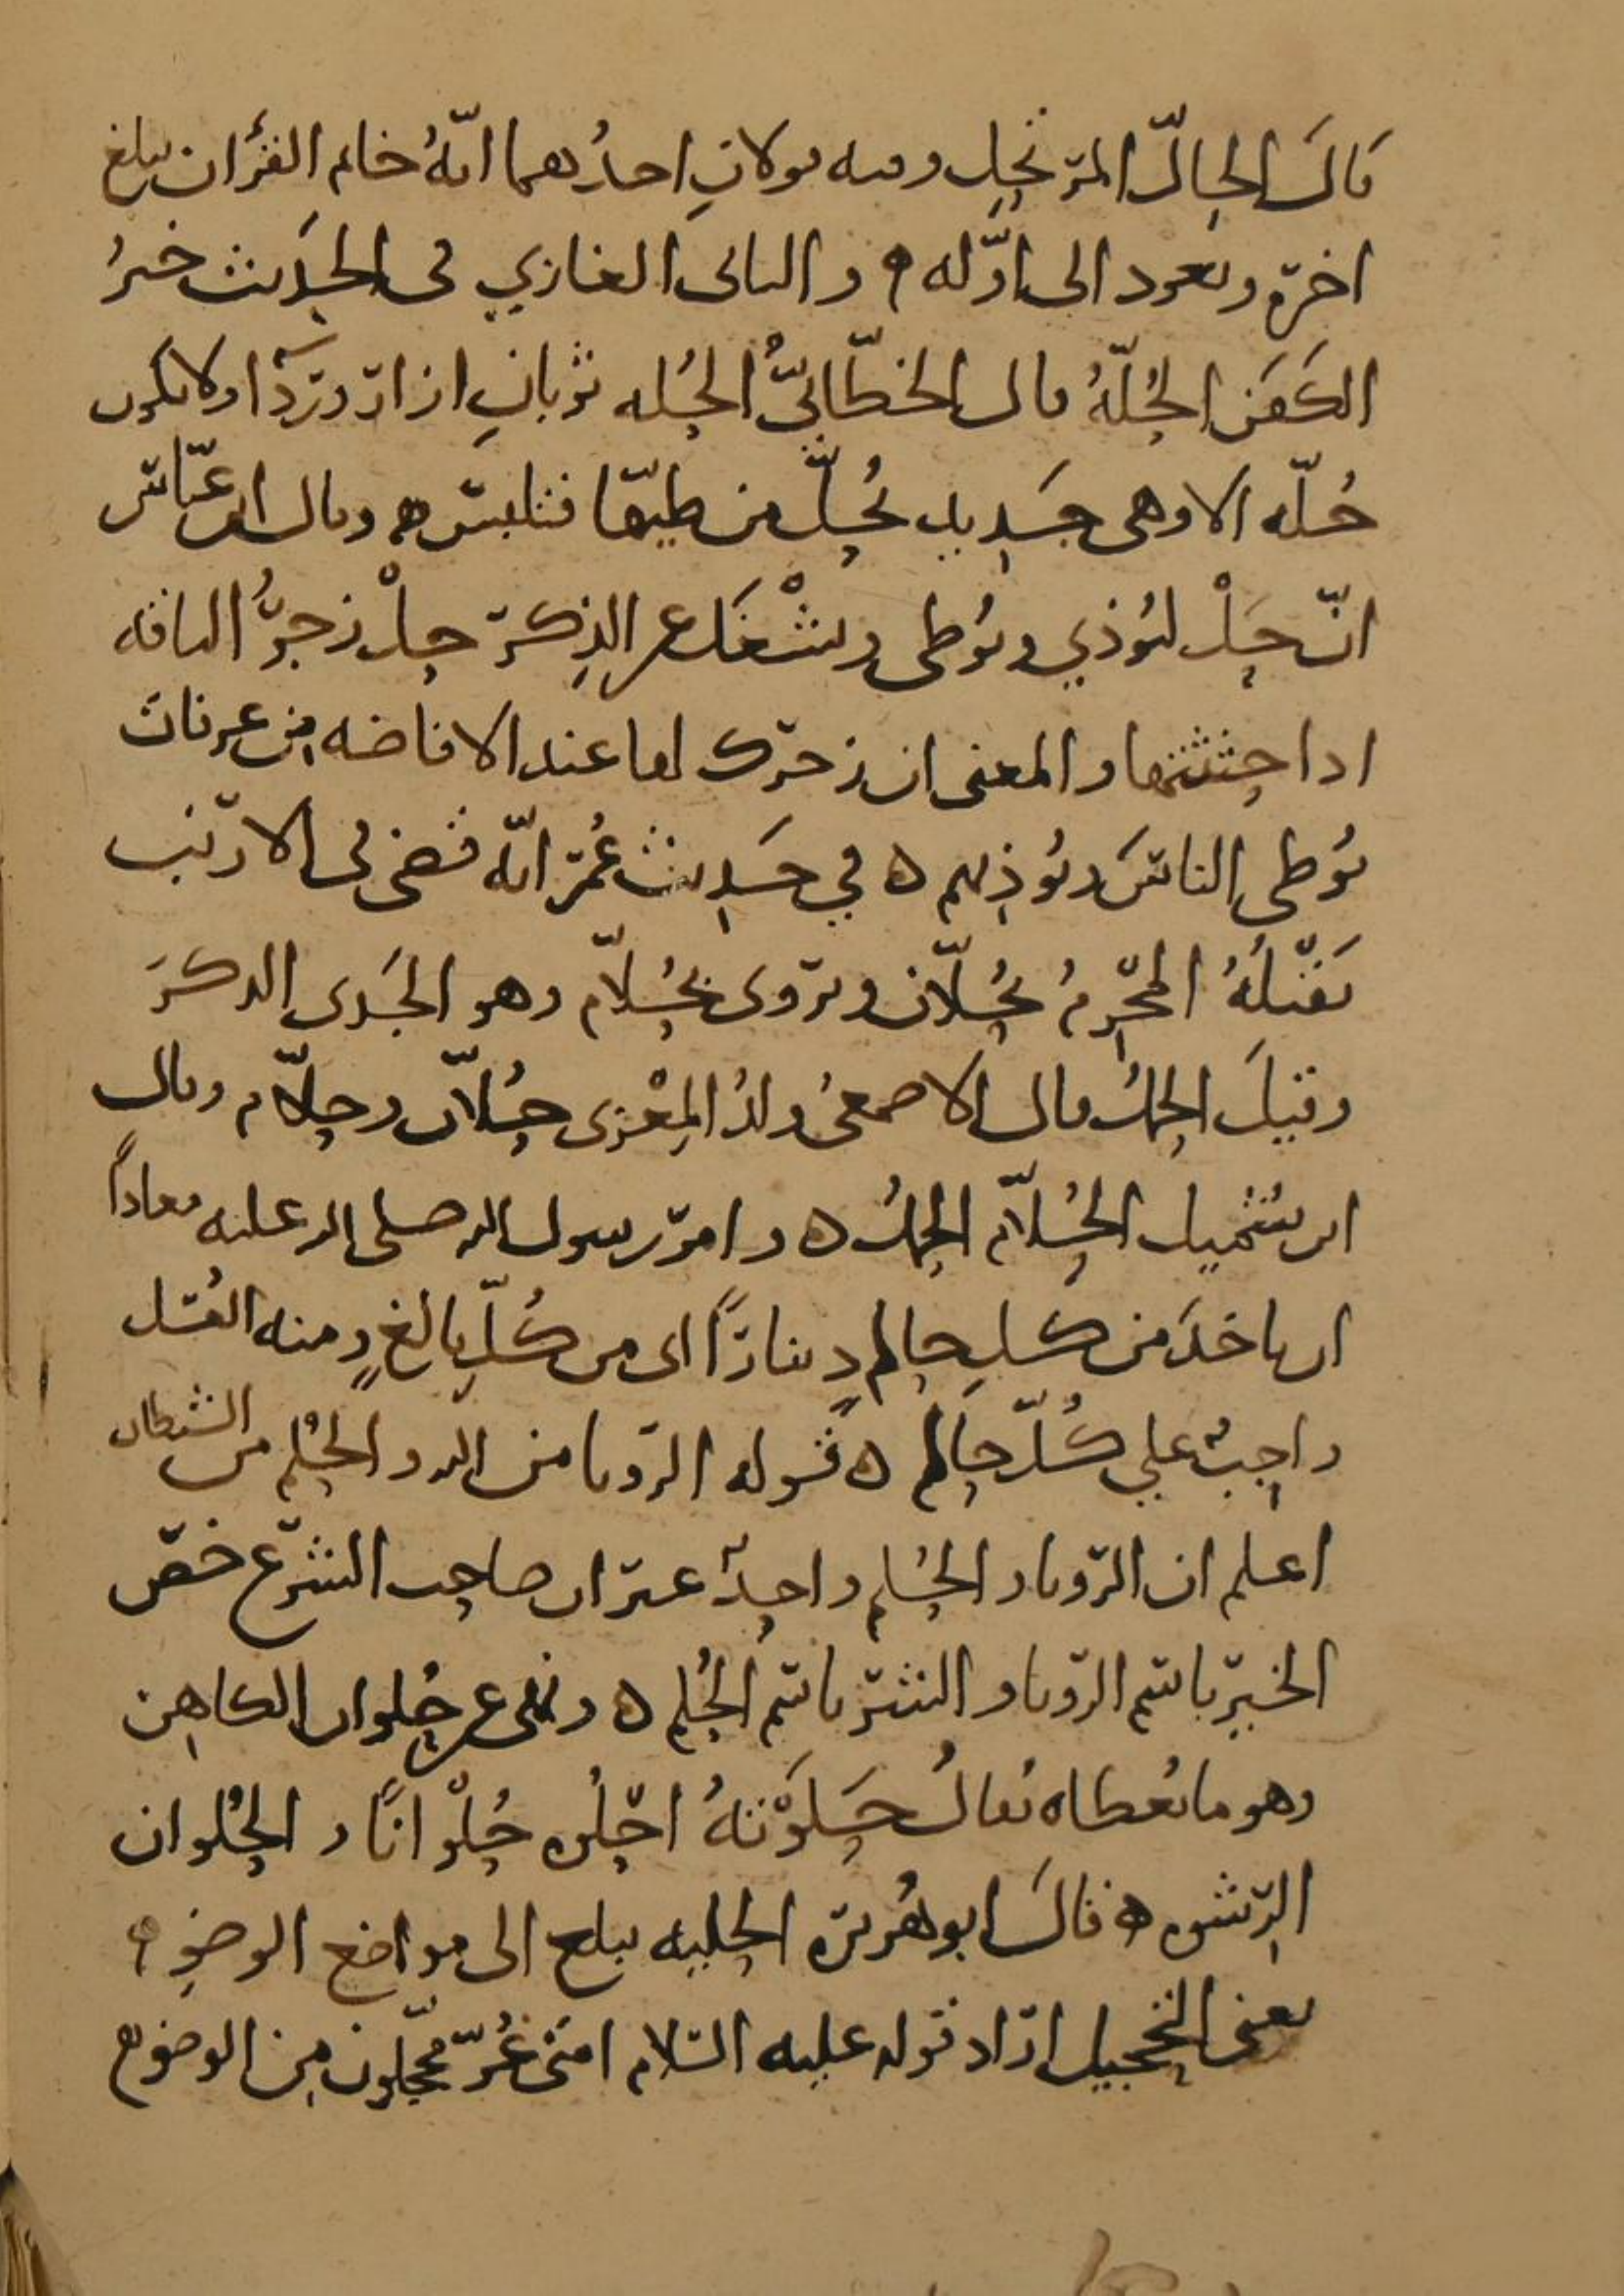 قالَ الحالّ المرتحِل وفيه قولانِ احدُهما انّهُ خاتم القرآن يبلغ
اخرَهُ ويعود الى اوّله ه والثاني الغازي في الحَدِيث خيرُ
الكَفَن الحُلّةُ قال الخطّابيُّ الحُله ثوبانِ ازار ورِدآ ولا يكون
حُلّه الا وهي جَدِيد تُحَلّ من طيّها فتلبس ه وقال ابن عبّاس
انّ حَلْ لتُؤذي وتُوطي وتشْغَل عن الذِكر حلْ زجرُ الناقه
اذا حثثتها والمعنى ان زجرك لها عند الافاضه من عرفات
تُوطي الناسَ وتُؤذيهم ه في حَدِيث عُمر انّه قضى في الارنب
يَقتُلُهُ المحرمُ بحُلّان ويروى بحُلّام وهو الجَدى الذكرَ
وقيلَ الحملُ قال الاصمعيُ ولدُ المِعْزى حُلّان وحلّام وقال
ابن شُمَيل الحُلّام الحملُ ه وامر رسول الله صلى الله عليه معاذاً
ان ياخذَ من كلِ حالمٍ دِيناراً اى من كُلّ بالغٍ ومنه الغُسل
واجبٌ علي كُلّ حالمٍ ه قوله الرؤيا من الله والحُلْم من الشيطان
اعلم ان الرّؤيا والحُلم واحِدٌ غير ان صاحِب الشرع خصّ
الخير باسم الرّؤيا والشر باسم الحُلم ه ونهى عن حُلوان الكاهن
وهو ما يُعطاه يُقالُ حَلَوْتهُ احلُوه حُلْوانًا والحُلوان
الرِشوه ه قالَ ابو هُريره الحِليه تبلغ الى مواضع الوضوِء
يعنى التحجيل اراد قوله عليه السّلام امتى غُرّ محجّلون مِن الوضوء